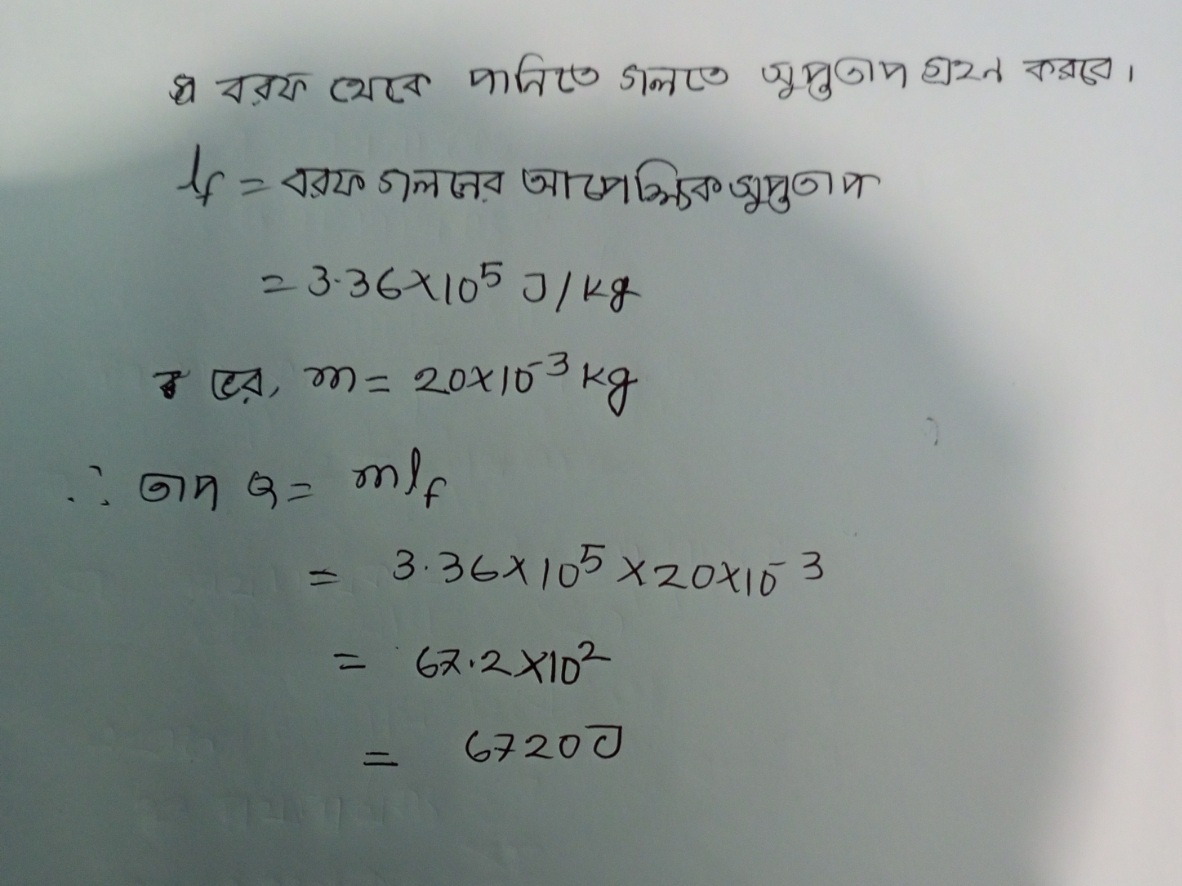 বরফ থেকে পানিতে গলতে সুপ্ততাপ গ্রহন করবে।
lf = বরফ গলনের আপেক্ষিক সুপ্ততাপ
= 3.36×10⁵ J/kg
ভর, m = 20×10⁻³ kg
∴ তাপ Q = mlf
= 3.36×10⁵ ×20×10⁻³
= 67.2×10²
= 6720J